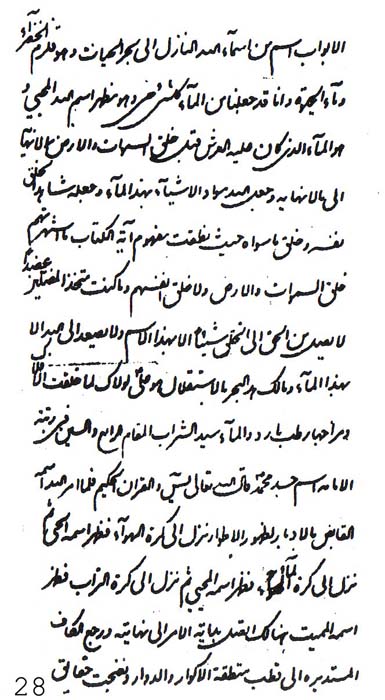 الابواب اسم من اسمآء الله النازل الى بحر الحيات و هو قلزم الخضرآء
و مآء الحيوة و انا قد جعلنا من المآء كلشئ حي و هو مظهر اسم الله المحيي و
هو المآء الذي كان عليه العرش قبل خلق السموات والارض بالانهاية
الى مالانهاية و جعل الله مواد الاشيآء بهذا المآء و جعله شاهد الخلق
نفسه و خلق ماسواه حيث نطقت مفهوم آية الكتاب ما اشهدتهم
خلق السموات والارض ولا خلق انفسهم وما كنت متخذ المضلين عضدا
لا يصل من الحق الى الخلق شيئا الا بهذا الاسم ولا يصعد الى الله الا
بهذا المآء و مالك هذا البحر بالاستقلال هو علي لولاك لما خلقت الافلاك
و مرآ جبار طب بارد والمآء سيد الشراب المقام الرابع والسين في رتبة
الامامة اسم حسد محمد قال الله تعالى يس والقران الحكيم فلما امر الله اسمه
القابض بالادبار لظهور الاظهار نزل الى كرة الهوآء فظهر اسمه الحي ثم
نزل الى كرة المآء فظهر اسمه المحيي ثم نزل الى كرة التراب فظهر
اسمه المميت هنالك اتصل بداية الامر الى نهايته و رجع الكاف
المستديره الى قطب منطقة الاكوار والادوار و نضجت حقايق
28